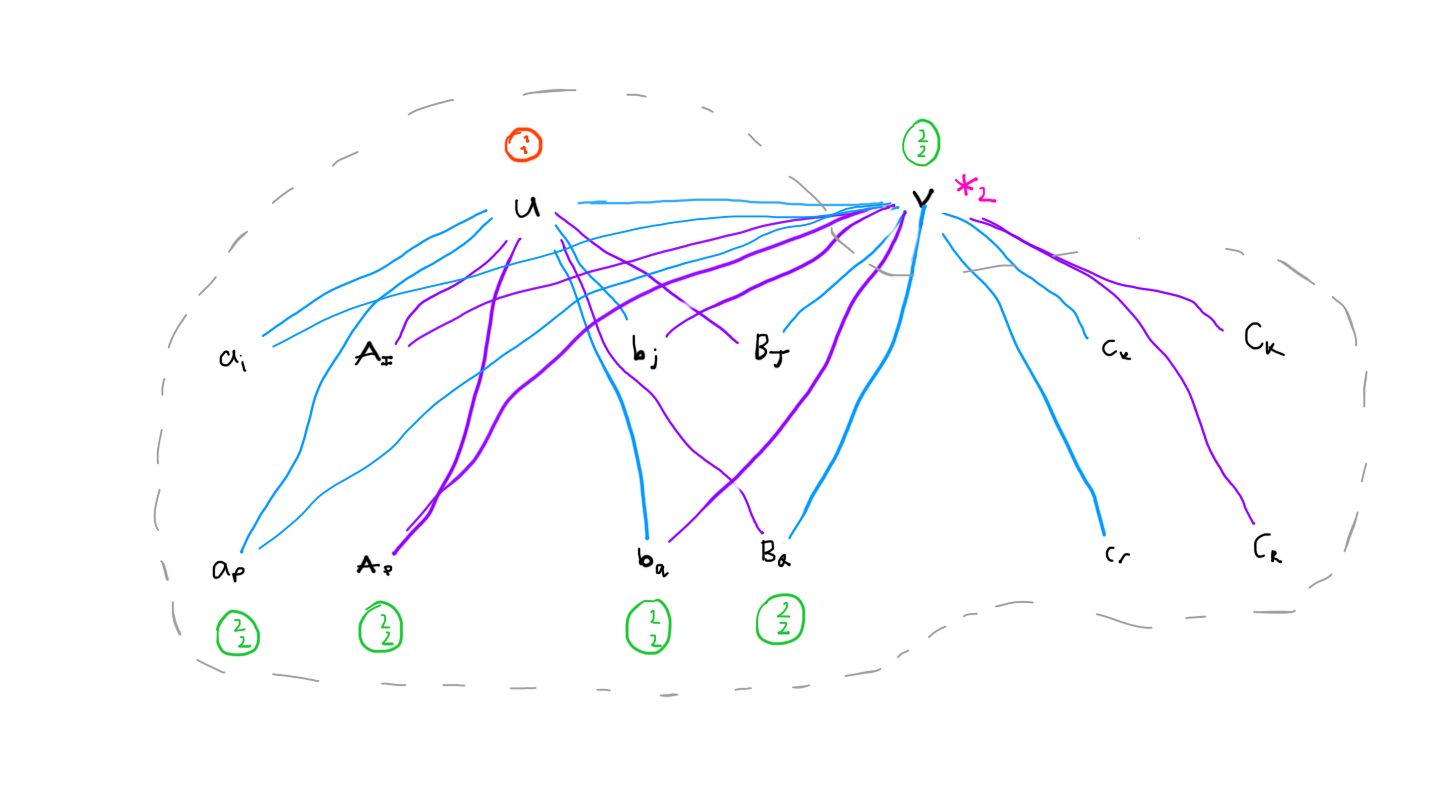 2
2
U
V
*2
ai
AI
bj
BJ
ck
CK
ap
AP
bq
BQ
cr
CR
2
2
2
2
2
2
2